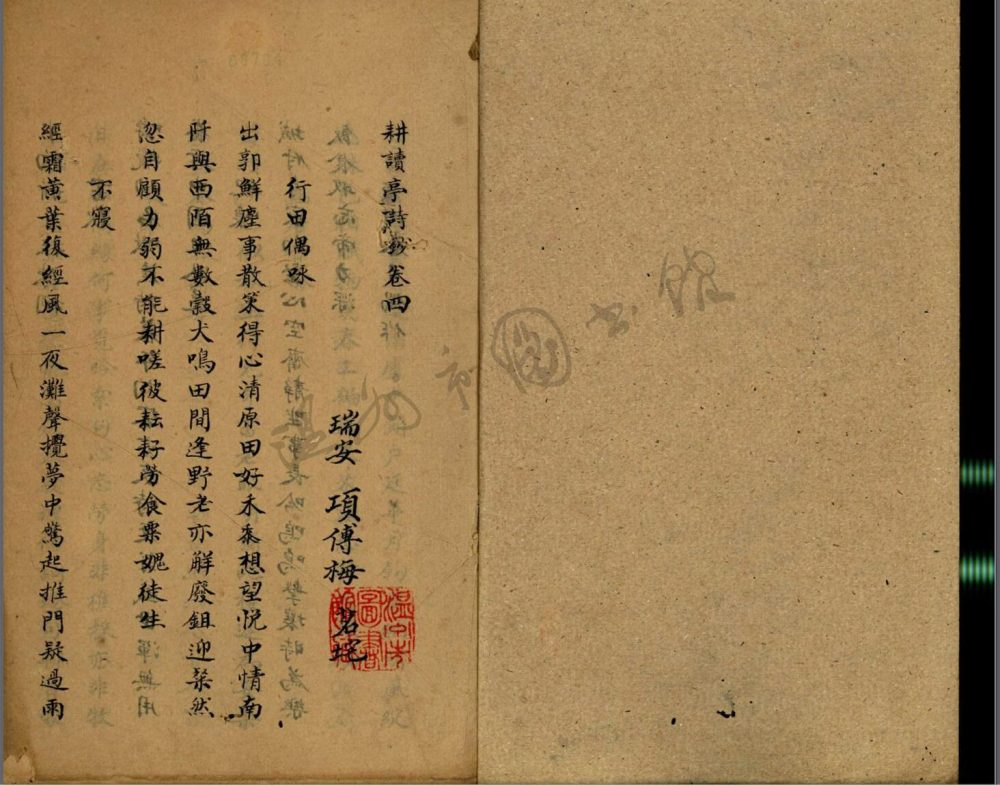 耕讀亭詩鈔卷四
瑞安 項傅梅 茗垞
行田偶咏
出郭鮮塵事散策得心清原田好禾黍想望悅中情南
阡與西陌無數穀犬鳴田間逢野老亦解廢鉏迎粲然
忽自顧力弱不能耕嗟彼耘耔勞食粟媿徒生
不寢
經霜黃葉復經風一夜灘聲攪夢中驚起推門疑過雨
溫州市圖書館